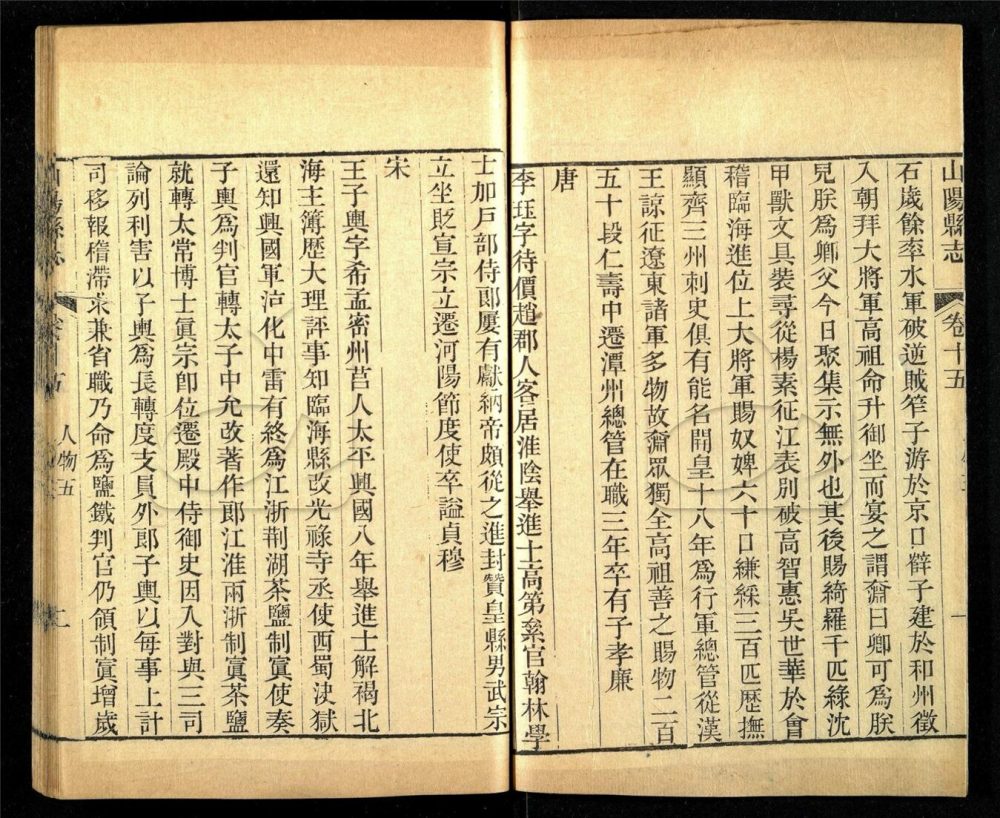 山陽縣志
卷十五
一
石歲餘率水軍破逆賊笮子游於京口薛子建於和州徵
入朝拜大將軍高祖命升御坐而宴之謂奫曰卿可爲朕
兒朕爲卿父今日聚集示無外也其後賜綺羅千匹綠沈
甲獸文具裝尋從楊素征江表別破高智惠吳世華於會
稽臨海進位上大將軍賜奴婢六十口縑綵三百匹歷撫
顯齊三州刺史俱有能名開皇十八年爲行軍總管從漢
王諒征遼東諸軍多物故奫眾獨全高祖善之賜物二百
五十段仁壽中遷潭州總管在職三年卒有子孝廉
唐
李珏字待價趙郡人客居淮陰舉進士高第絫官翰林學
士加戶部侍郞屢有獻納帝頗從之進封贊皇縣男武宗
立坐貶宣宗立遷河陽節度使卒謚貞穆
宋
王子輿字希孟密州莒人太平興國八年舉進士解褐北
海主簿歷大理評事知臨海縣改光祿寺丞使西蜀決獄
還知興國軍湻化中雷有終爲江浙荆湖茶鹽制寘使奏
子輿爲判官轉太子中允改著作郞江淮兩浙制寘茶鹽
就轉太常博士眞宗卽位遷殿中侍御史因入對與三司
論列利害以子輿爲長轉度支員外郞子輿以每事上計
司移報稽滯求兼省職乃命爲鹽鐵判官仍領制寘增歲
人物五